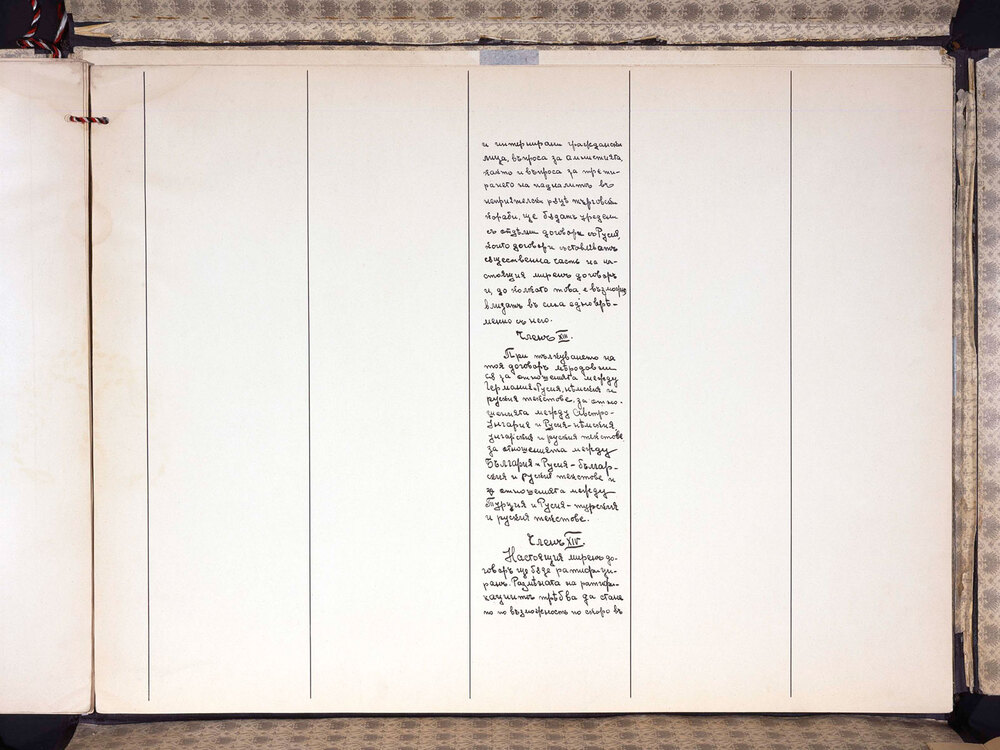 и интернирани граждански
лица, въпроса за амнистията,
както и въпроса за трети-
рането на падналитѣ въ
неприятелски рѫцѣ търговски
кораби, ще бѫдатъ уредени
съ отдѣлни договори съ Русия,
които договори съставляватъ
сѫществена часть на на-
стоящия миренъ договоръ
и, до колкото това е възможно,
влизатъ въ сила едноврѣ-
менно съ него.
Членъ XIII.
При тълкуването на
тоя договоръ мѣродавни
сѫ за отношенията между
Германия и Русия, нѣмския и
руския текстове, за отно-
шенията между Австро-
Унгария и Русия - нѣмския,
унгарския и руския текстове
за отношенията между
България и Русия - българ-
ския и руския текстове и
за отношенията между
Турция и Русия - турския
и руския текстове.
Членъ XIV.
Настоящия миренъ до-
говоръ ще бѫде ратифици-
ранъ. Размѣната на ратифи-
кациитѣ трѣбва да стане
по възможность по скоро въ